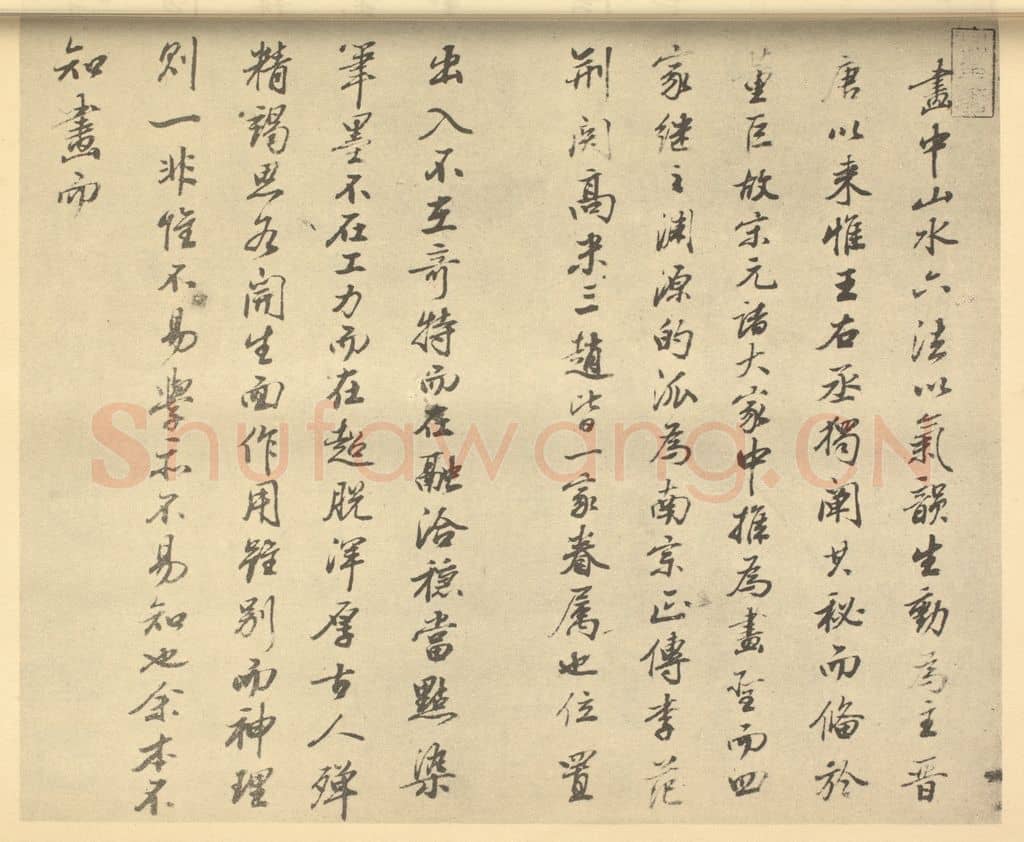 畫中山水六法以氣韻生動為主晋
唐以来惟王右丞獨闡其秘而俻於
董巨故宋元諸大家中推為畫聖而四
家继之淵源的派為南宗正傳李范
荆関髙米三趙皆一家眷属也位置
出入不在奇特而在融洽穏當點染
筆墨不在工力而在超脱渾厚古人殫
精竭思各開生面作用雖别而神理
則一非惟不易學亦不易知也余本不
知畫而
Shufawang.CN